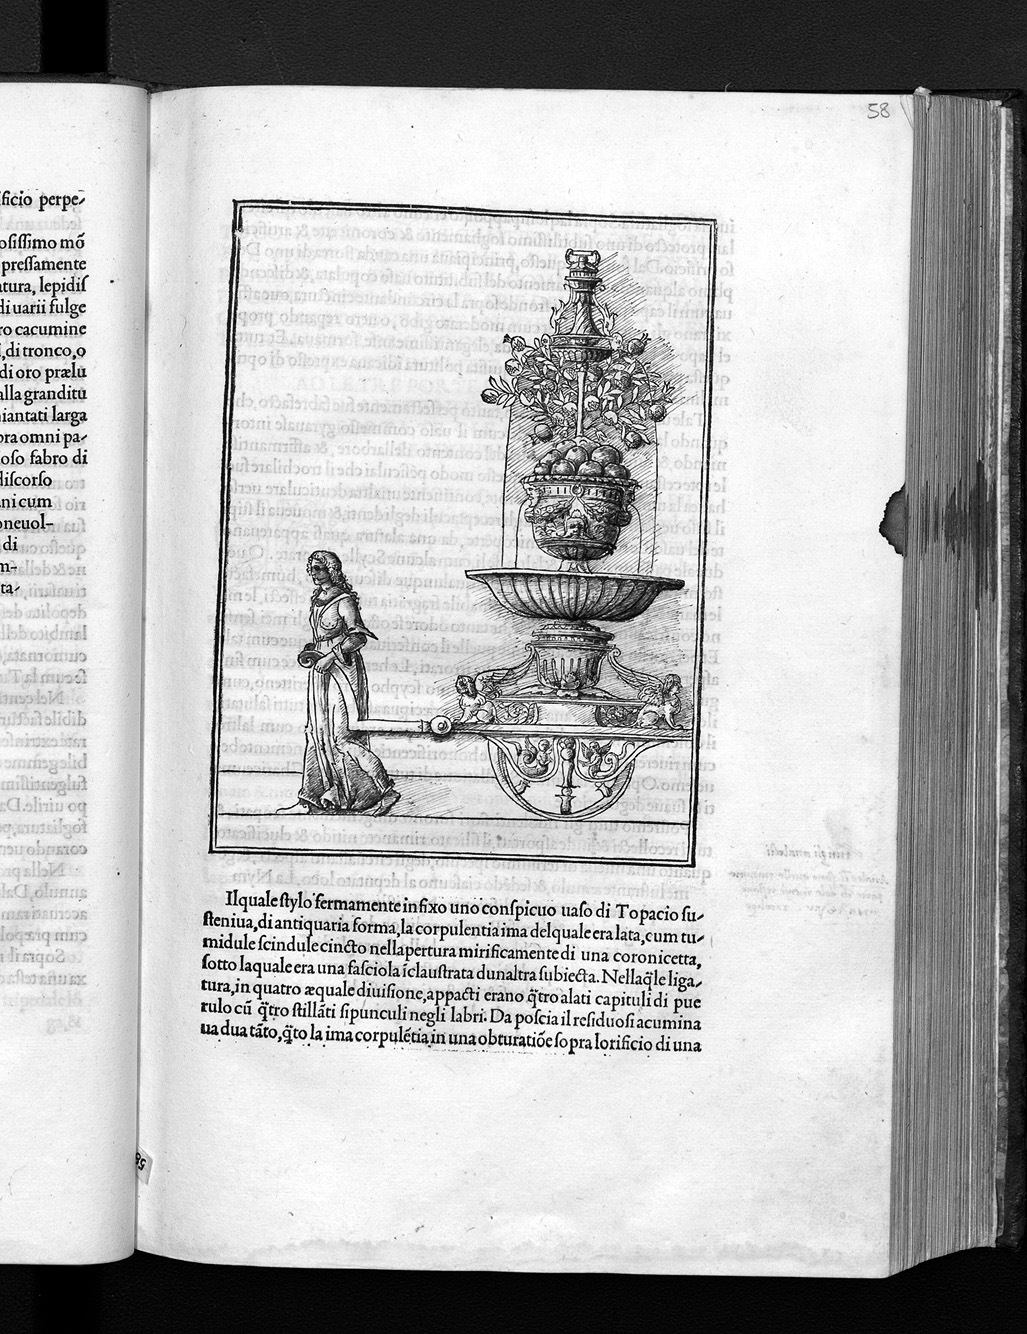 ficio perpe-
osissimo mō
pressamente
atura, lepidis
di uarii fulge
ro cacumine
di tronco, o
di oro prælu
alla granditu
niantati larga
pra omni pa-
oso fabro di
discorso
ani cum
oneuol-
di
m-
ta-
58
Il quale stylo fermamente infixo uno conspicuo uaso di Topacio su-
steniua, di antiquaria forma, la corpulentia ima del quale era lata, cum tu-
midule scindule cincto nella pertura mirificamente di una coronicetta,
sotto la quale era una fasciola īclaustrata dunaltra subiecta. Nellaq̄le liga-
tura, in quatro æquale diuisione, appacti erano q̄tro alati capituli di pue
rulo cū q̄tro stillāti sipunculi negli labri. Da poscia il residuo si acumina
ua dua tāto, q̄to la ima corpulētia, in una obturatiōe sopra lorificio di una
58